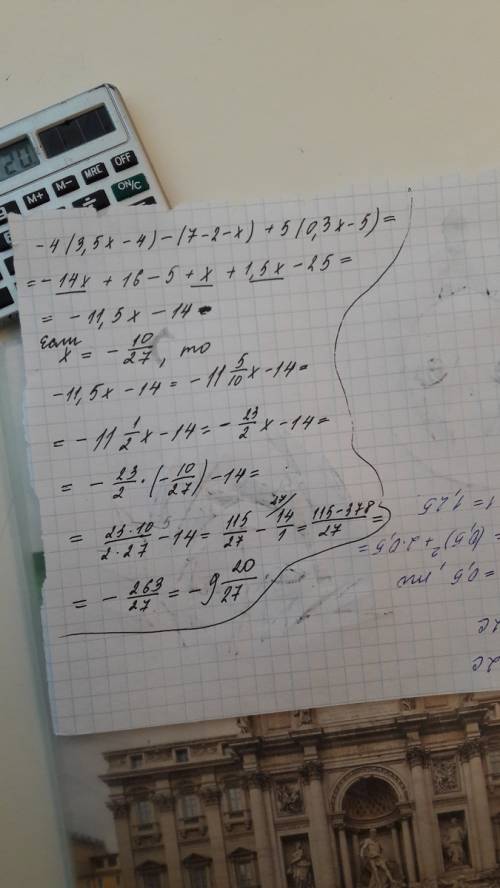 20
M+ M- MRC OFF
ON/C
-4(3,5x-4)-(7-2-x)+5(0,3x-5)=
=-14x+16-5+x+1,5x-25=
=-11,5x-14
Если
x=-10/27, то
-11,5x-14=-11 5/10x-14=
=-11 1/2x-14=-23/2x-14=
=-23/2·(-10/27)-14=
=23·10 5/2·27-14=115/27-14 27//1=115-378/27=
=-263/27=-9 20/27.
1=1,25.
=(0,5)²+2·0,5=
=0,5, то
2c
2c